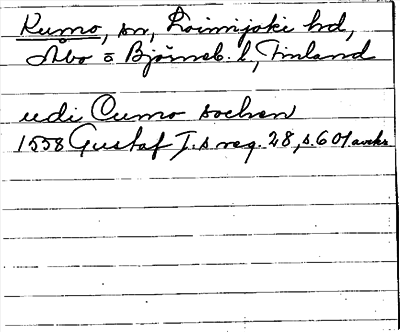 Kumo, sn, Loimijoki hd,
Åbo o Björneb. l, Finland
udi Cumo sochen
1558 Gustaf I.s reg. 28, s.601 avskr.